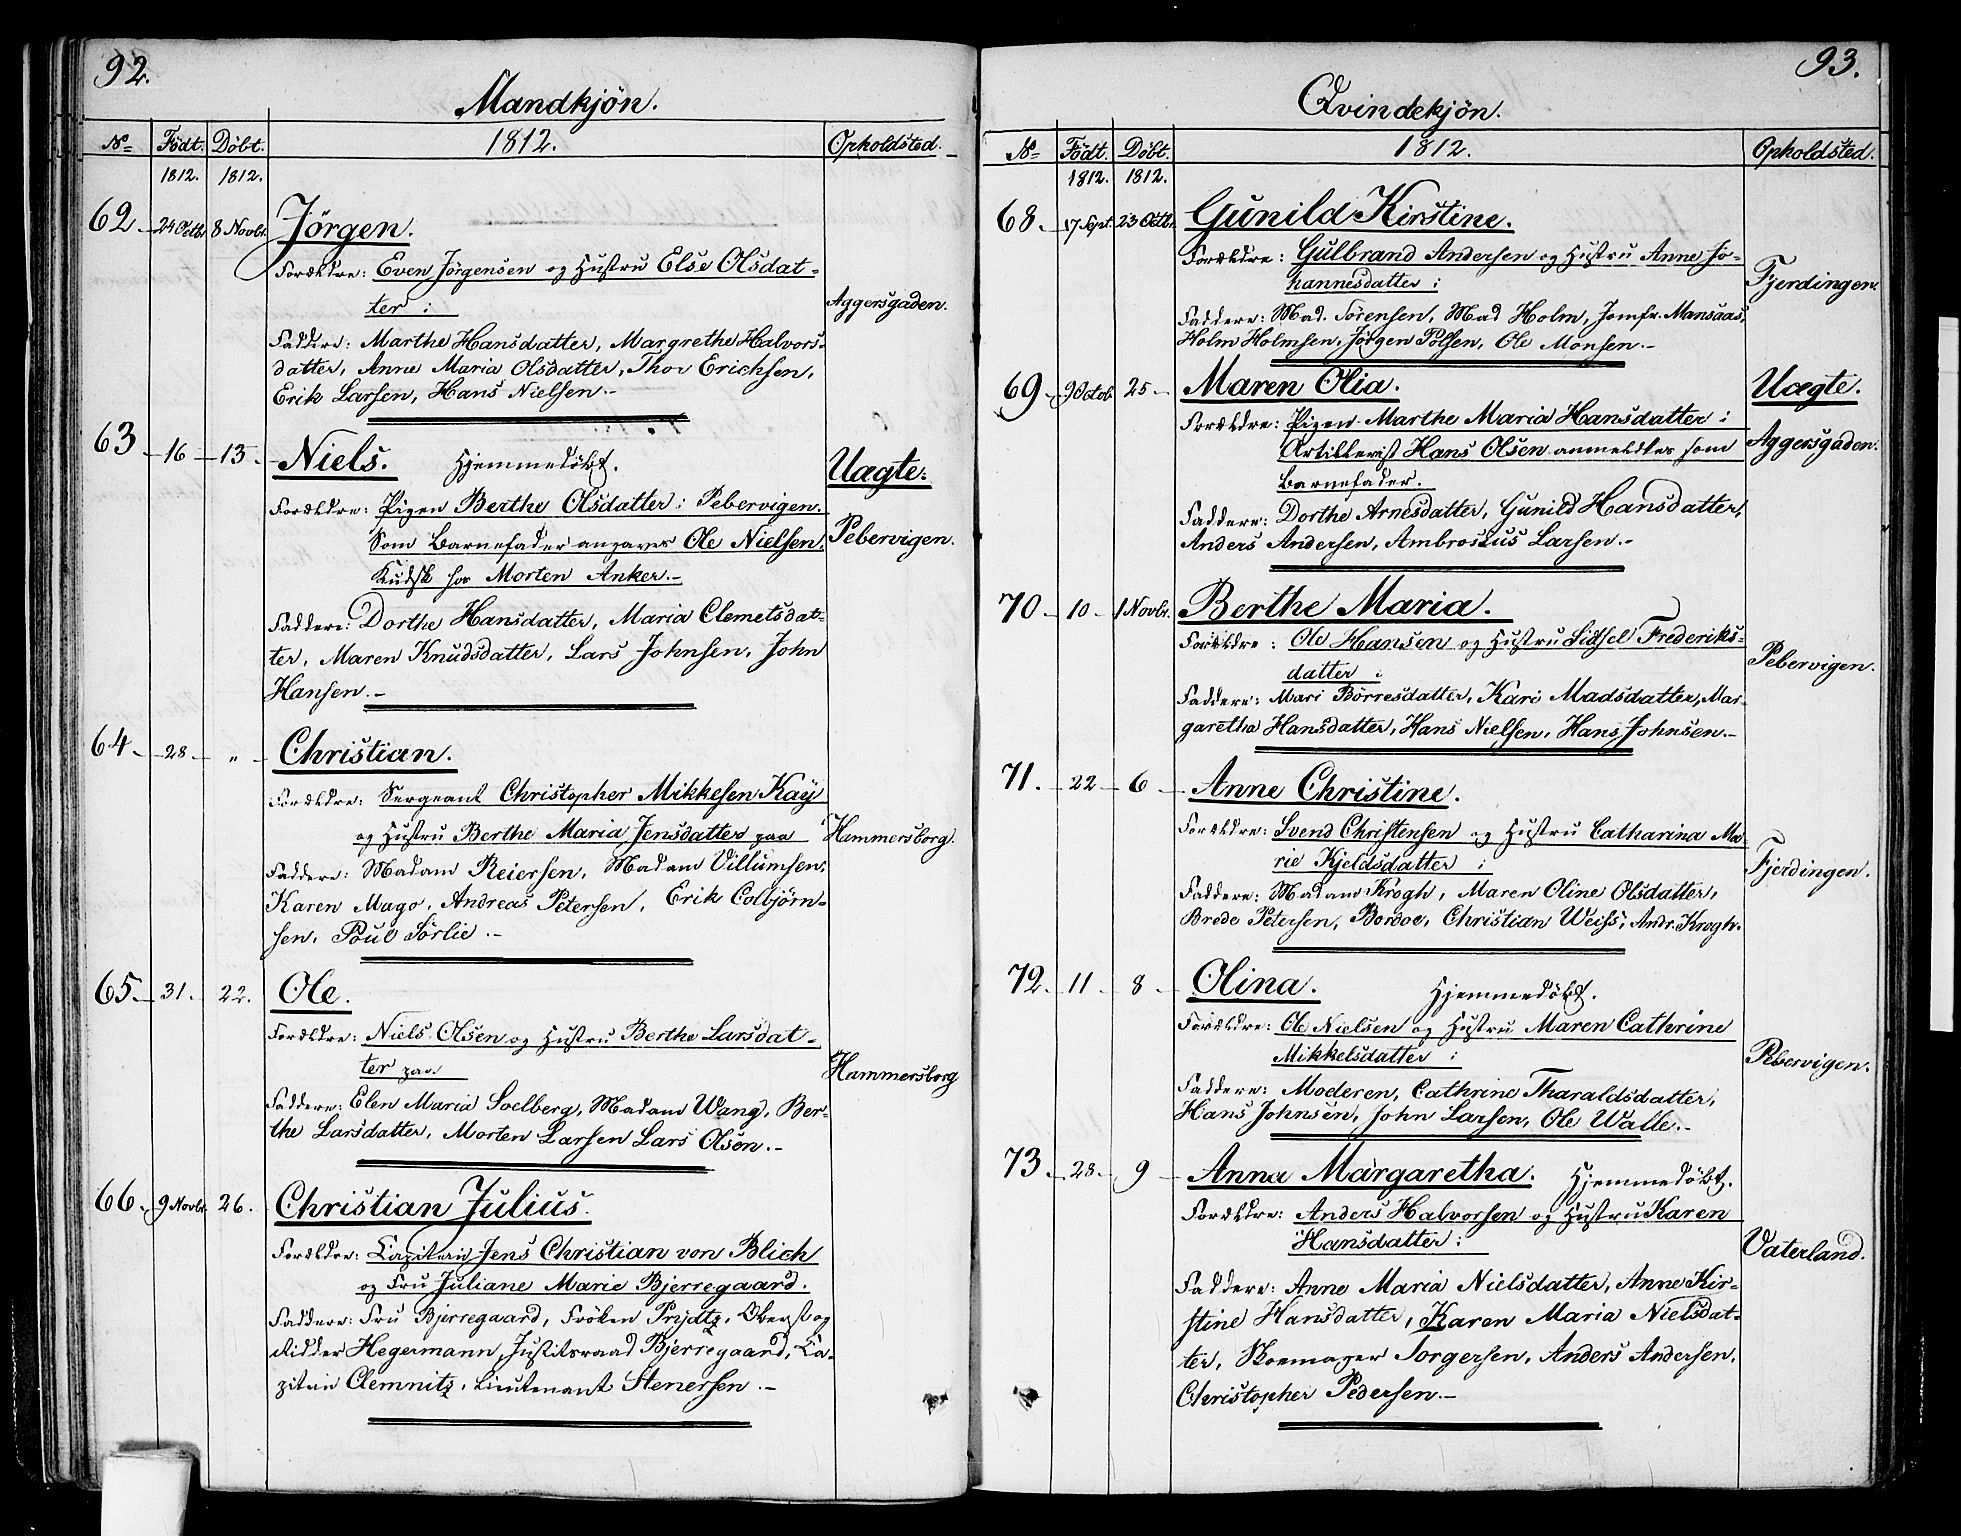 92.
Mandkjön.
No Födt. Döbt. 1812. Opholdsted.
1812. 1812.
62 24 Octbr 8 Novbr. Jörgen.
Forældre: Even Jörgensen og Hustru Else Olsdat-
ter :
Aggersgaden.
Faddere: Marthe Hansdatter, Margrethe Halvors-
datter, Anne Maria Olsdatter, Thor Erichsen,
Erik Larsen, Hans Nielsen.-
63 - 16 - 13. - Niels. Hjemmedöbt. Uægte:
Forældre: Pigen Berthe Olsdatter: Pebervigen.
Som Barnefader angaves Ole Nielsen, Pebervigen.
Kudsk for Morten Anker.-
Faddere: Dorthe Hansdatter, Maria Clemetsdat-
ter, Maren Knudsdatter, Lars Johnsen, John
Hansen.-
64 - 28 - " - Christian.
Forældre: Sergeant Christopher Mikkesen Kaÿ
og Hustru Berthe Maria Jensdatter paa Hammersborg.
Faddere: Madam Reiersen, Madam Villumsen,
Karen Mugo, Andreas Petersen, Erik Colbjörn-
sen, Poul Sörlie.-
65 - 31. - 22. Ole.
Forældre: Niels Olsen og Hustru Berthe Larsdat-
ter paa
Hammersborg
Faddere: Elen Maria Soelberg, Madam Wang, Ber-
the Larsdatter, Morten Larsen Lars Olsen.-
66. - 9 Novbr. 26. Christian Julius.
Forældre: Capitain Jens Christian von Blich
og Fru Juliane Marie Bjerregaard.
Faddere: Fru Bjerregaard, Fröken Prydtz, Oberst og
Ridder Hegermann, Justitsraad Bjerregaard, Ca-
pitain Clemnitz, Lieutenant Stenersen.-
93.
Qvindekjön.
No Födt. Döbt. 1812. Opholdsted.
1812. 1812.
68. - 17 Sept. 23 Octbr. Gunild Kirstine.
Forældre: Gulbrand Andersen og Hustru Anne Jo-
hannesdatter :
Fjerdingen.
Faddere: Mad. Sörensen, Mad Holm, Jomfr. Mansaas,
Holm Holmsen, Jörgen Polsen, Ole Monsen.-
69 - 9 Octob. 25 - Maren Olia. Uægte.
Forældre: Pigen Marthe Maria Hansdatter :
Artillerist Hans Olsen anmeldtes som Aggersgaden.
Barnefader.
Faddere: Dorthe Arnesdatter, Gunild Hansdatter,
Anders Andersen, Ambrosius Larsen.-
70 - 10 - 1 Novbr. Berthe Maria.
Forældre: Ole Hansen og Hustru Sidsel Frederiks-
datter :
Pebervigen.
Faddere: Mari Börresdatter, Kari Madsdatter, Mar-
garetha Hansdatter, Hans Nielsen, Hans Johnsen.-
71. - 22 - 6 - Anne Christine.
Forældre: Svend Christensen og Hustru Catharina Ma-
rie Kjeldsdatter :
Fjerdingen.
Faddere: Madam Krogh, Maren Oline Olsdatter,
Brede Petersen, Bordoe, Christian Weiss, Andr. Krogh.
72. - 11 - 8 - Olina. Hjemmedöbt.
Forældre: Ole Nielsen og Hustru Maren Cathrine
Mikkelsdatter :
Pebervigen.
Faddere: Moderen, Cathrine Tharaldsdatter,
Hans Johnsen, John Larsen, Ole Walle.-
73 - 28 - 9 - Anna Margaretha. Hjemmedöbt.
Forældre: Anders Halvorsen og Hustru Karen
Hansdatter :
Vaterland.
Faddere: Anne Maria Nielsdatter, Anne Kir-
stine Hansdatter, Karen Maria Nielsdat-
ter, Skomager Torgersen, Anders Andersen,
Christopher Pedersen.-